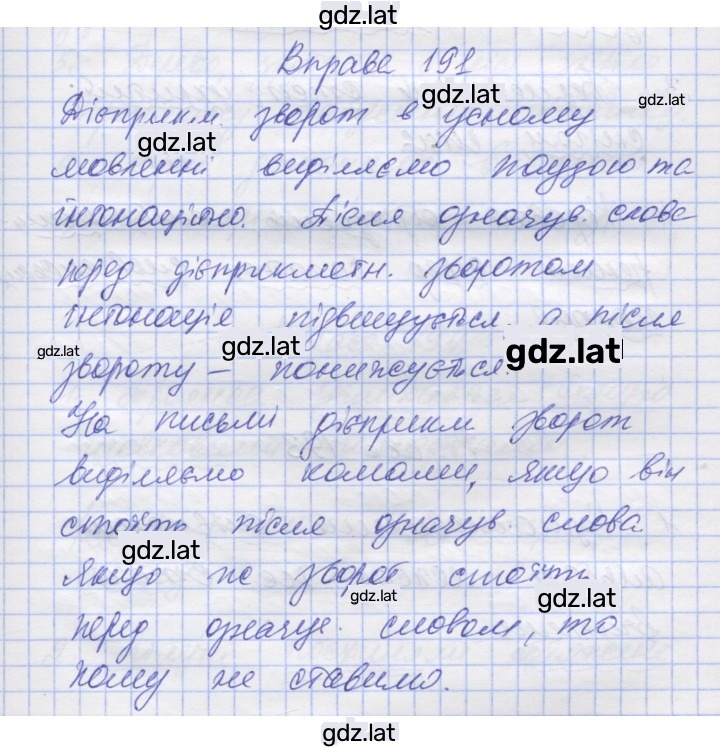 gdz.lat
Вправа 191
gdz.lat
Дієприкм. зворот в усному
gdz.lat
мовленні виділяємо паузою та
інтонаційно. Після означув. слова
перед дієприкметн. зворотом
інтонація підвищується, а після
gdz.lat gdz.lat gdz.lat
звороту – понижується.
На письмі дієприкм зворот
виділяємо комами, якщо він
стоїть після означув. слова
gdz.lat
Якщо ж зворот стоїть
gdz.lat gdz.lat
перед означув. словом, то
кому не ставимо.
gdz.lat